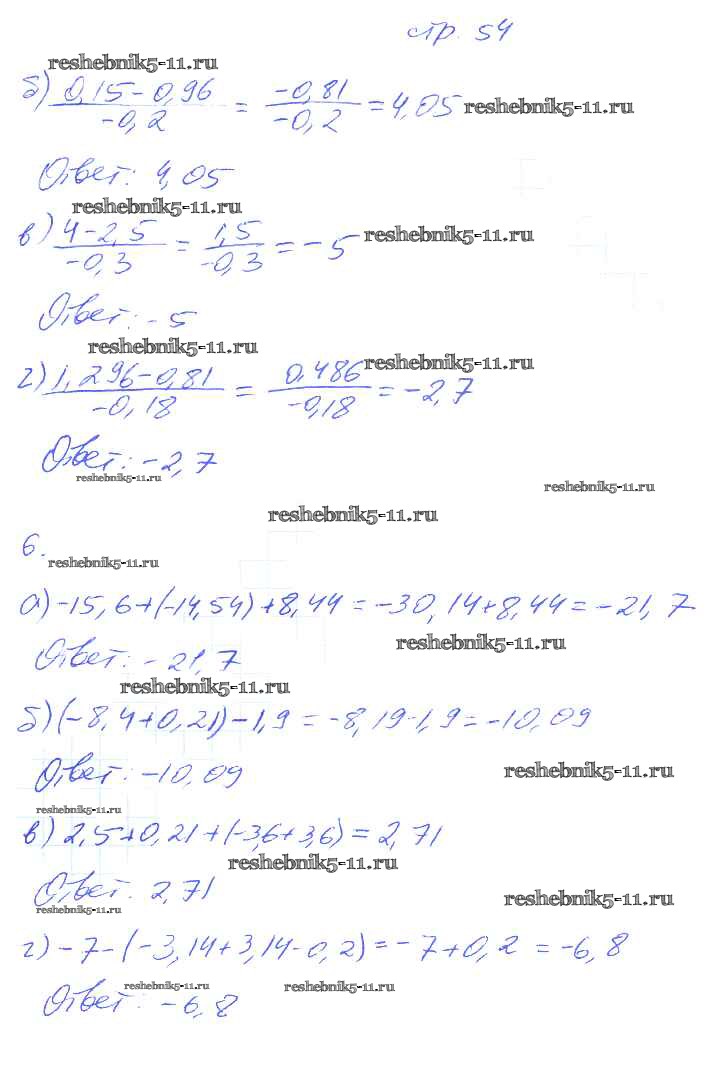 стр. 54
reshebnik5-11.ru
б) (0,15-0,96)/(-0,2) = (-0,81)/(-0,2) = 4,05 reshebnik5-11.ru
Ответ: 4,05
reshebnik5-11.ru
в) (4-2,5)/(-0,3) = (1,5)/(-0,3) = -5 reshebnik5-11.ru
Ответ: -5
reshebnik5-11.ru
reshebnik5-11.ru
г) (1,296-0,81)/(-0,18) = (0,486)/(-0,18) = -2,7
Ответ: -2,7
reshebnik5-11.ru
reshebnik5-11.ru
reshebnik5-11.ru
6.
reshebnik5-11.ru
а) -15,6+(-14,54)+8,44 = -30,14+8,44 = -21,7
reshebnik5-11.ru
Ответ: -21,7
reshebnik5-11.ru
б) (-8,4+0,21)-1,9 = -8,19-1,9 = -10,09
Ответ: -10,09
reshebnik5-11.ru
reshebnik5-11.ru
в) 2,5+0,21+(-3,6+3,6) = 2,71
reshebnik5-11.ru
Ответ. 2,71
reshebnik5-11.ru
reshebnik5-11.ru
г) -7-(-3,14+3,14-0,2) = -7+0,2 = -6,8
reshebnik5-11.ru
reshebnik5-11.ru
Ответ: -6,8